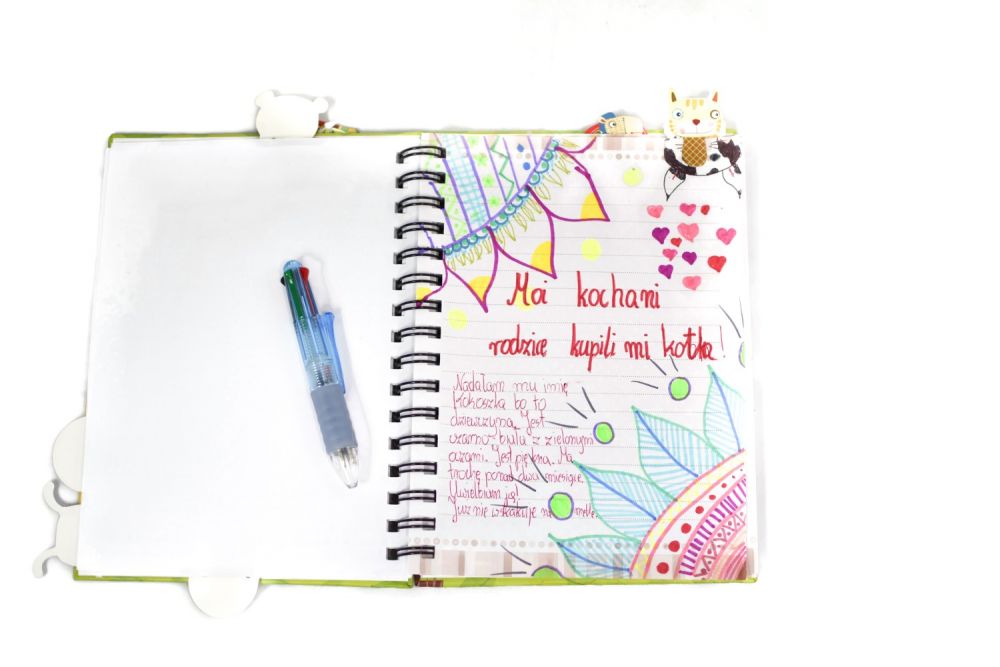 Moi kochani
rodzice kupili mi kotka!
Nadałam mu imię
Kokoszka bo to
dziewczyna. Jest
czarno-biała z zielonymi
oczami. Jest piękna. Ma
trochę ponad dwa miesiące.
Uwielbiam ją!
Już nie wskakuje na meble.